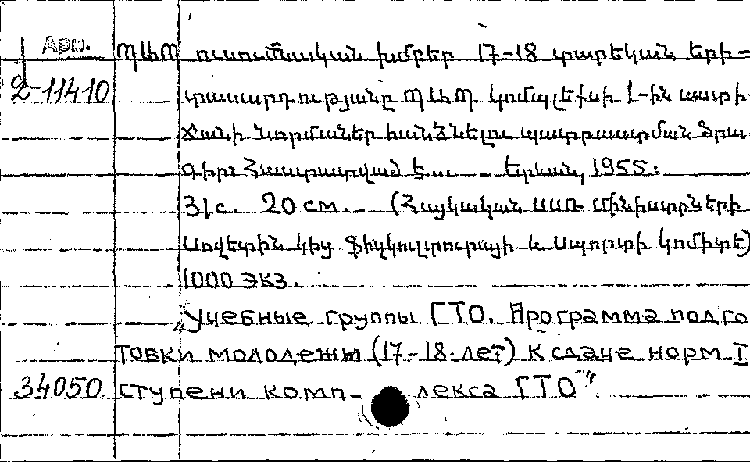 Арм.
ՊԱՊ ուսումնական խմբեր 17-18 տարեկան երի-
2-11410
տասարդությանը ՊԱՊ կոմպլեքսի 1-ին աստի
ճանի նորմաներ հանձնելու պատրաստման ծրա
գիր: Հաստատված է... - Երևան, 1955:
31с. 20 см. - (Հայկական ՍՍՌ մինիստրների
Սովետին կից Ֆիզկուլտուրայի և Սպորտի կոմիտե)
1000 экз.
"Учебные группы ГТО. Программа подго
товки молодежи (17-18-лет) к сдаче норм I
34050 ступени комп- лекса ГТО".